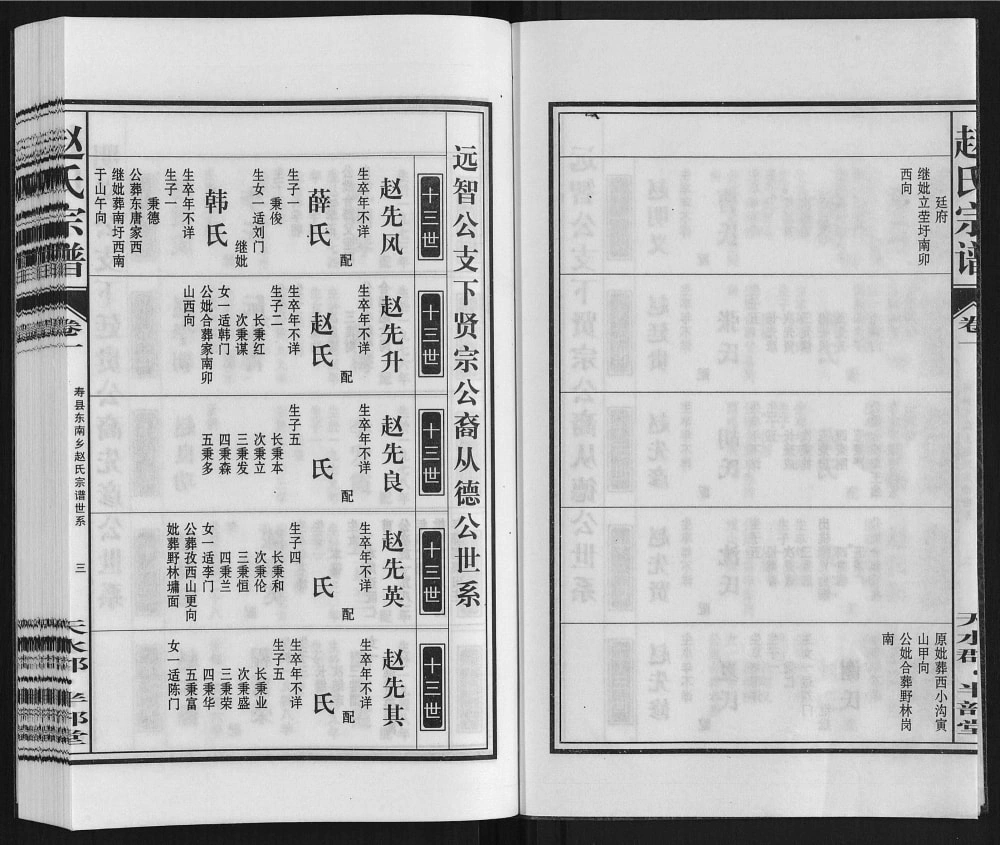 赵氏宗谱
卷一
廷府
继妣立茔圩南卯
西向
原妣葬西小沟寅
山甲向
公妣合葬野林岗
南
天水郡·半部堂
远智公支下贤宗公裔从德公世系
十三世
赵先风
生卒年不详
配
薛氏
生子一
秉俊
生女一适刘门
继妣
韩氏
生卒年不详
生子一
秉德
公葬东唐家西
继妣葬南圩西南
于山午向
十三世
赵先升
生卒年不详
配
赵氏
生卒年不详
生子二
长秉红
次秉谋
女一适韩门
公妣合葬家南卯
山西向
十三世
赵先良
生卒年不详
配
氏
生子五
长秉本
次秉立
三秉发
四秉森
五秉多
十三世
赵先英
生卒年不详
配
氏
生子四
长秉和
次秉伦
三秉恒
四秉兰
女一适李门
公葬孜西山更向
妣葬野林墉面
十三世
赵先其
生卒年不详
配
氏
生卒年不详
生子五
长秉业
次秉盛
三秉荣
四秉华
五秉富
女一适陈门
赵氏宗谱
卷一
寿县东南乡赵氏宗谱世系
三
天水郡·半部堂